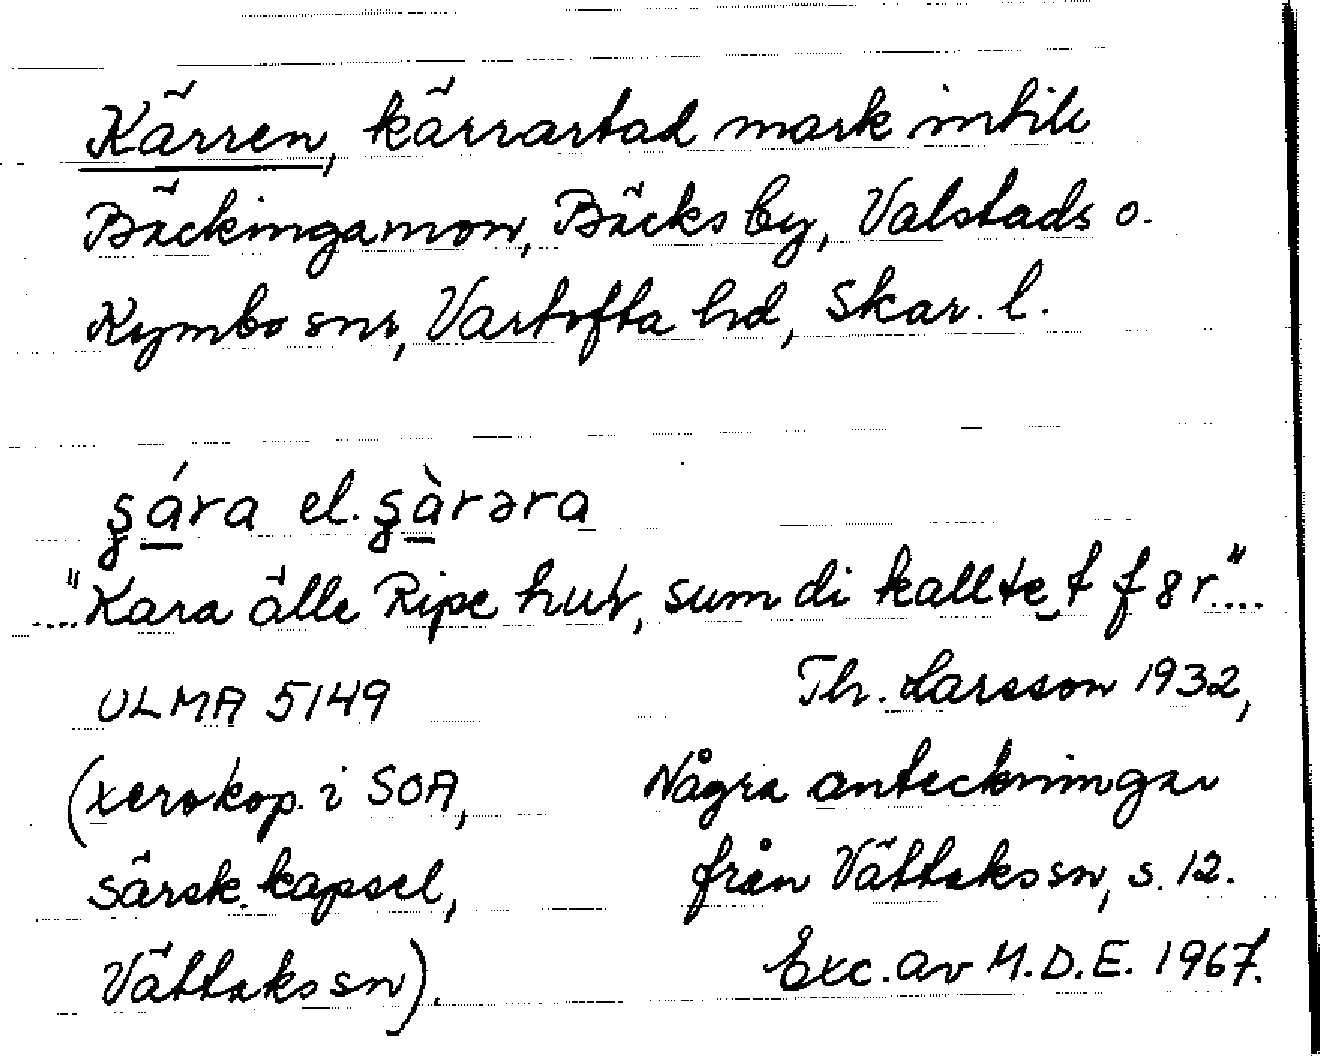 Kärren, kärrartad mark intill
Bäckingamon, Bäcks by, Valstads o.
Kymbo snr, Vartofta hd, Skar. l.
ʂára el. ʂàrəra
"Kara älle Ripe hut, sum di kallte t f 8 r"....
ULMA 5149 Th. Larsson 1932,
(xerokop. i SOA, Några anteckningar
särsk. kapsel, från Vättaks sn, s. 12.
Vättaks sn). Exc. av M.D.E. 1967.